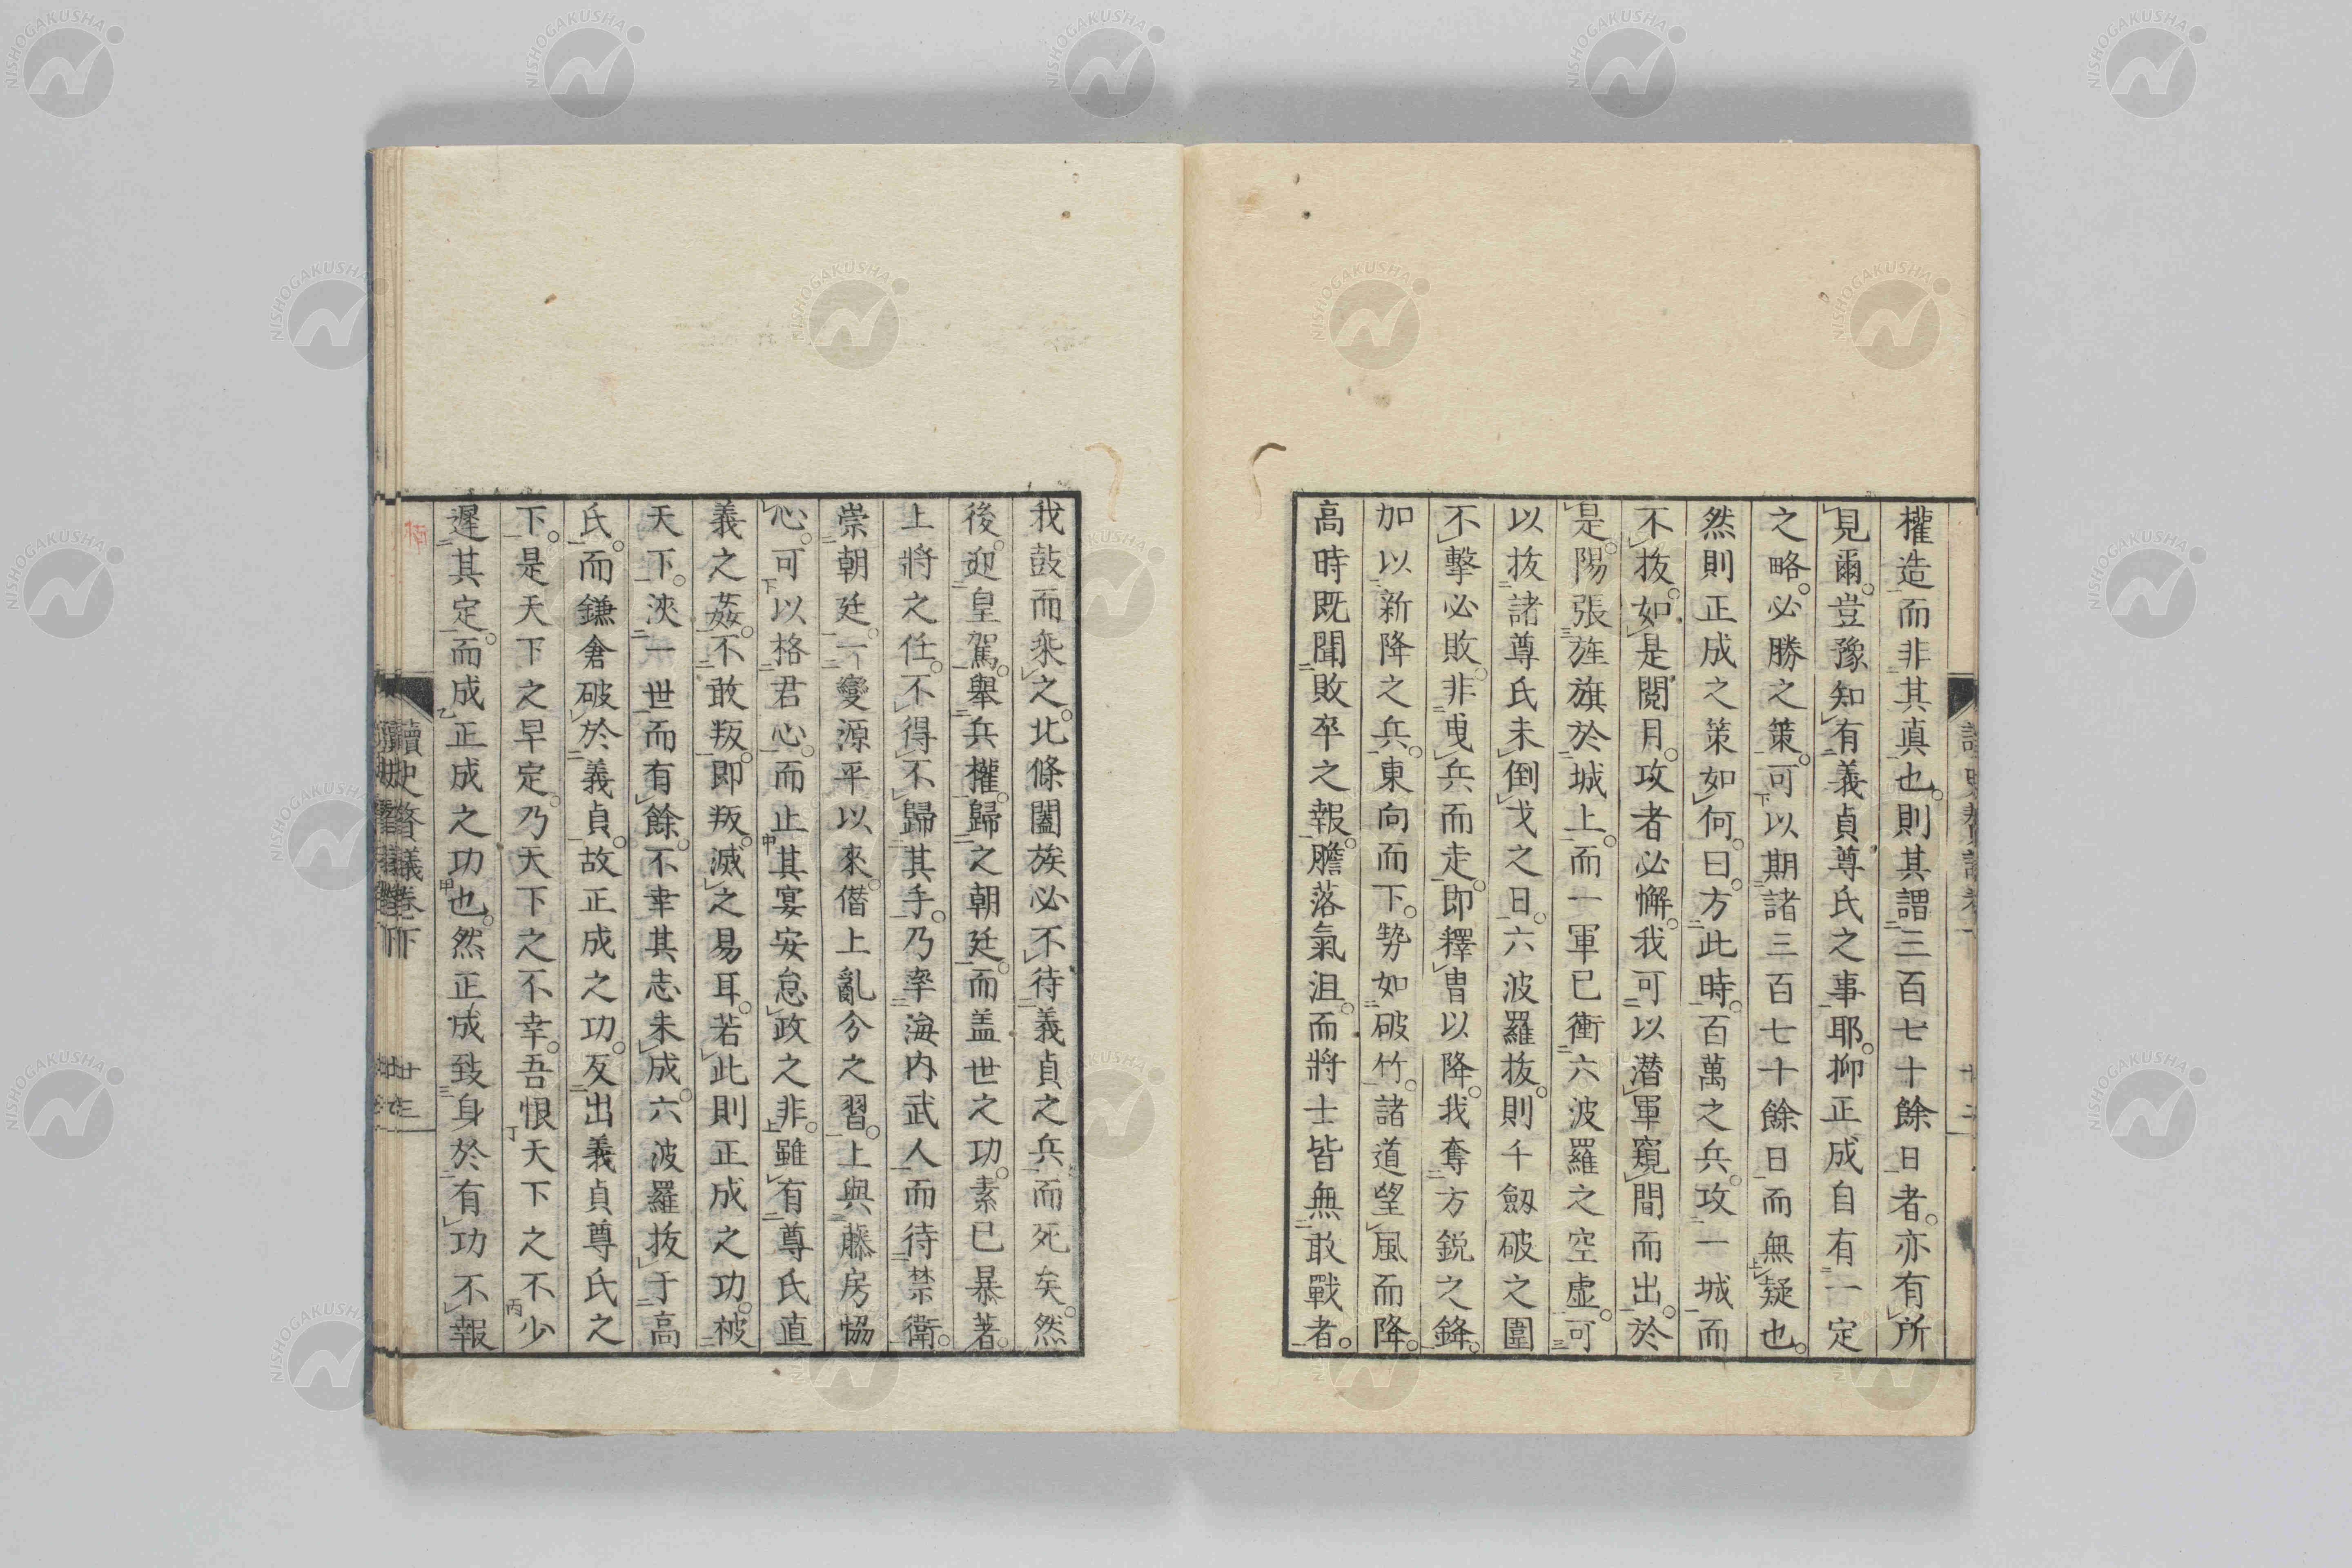 權造而非其真也。則其謂三百七十餘日者。亦有所
見爾。豈豫知有義貞尊氏之事耶。抑正成自有一定
之略。必勝之策。可以期諸三百七十餘日而無疑也。
然則正成之策如何。曰。方此時。百萬之兵。攻一城而
不拔。如是閱月。攻者必懈。我可以潜軍窺間而出。於
是。陽張旌旗於城上。而一軍已衝六波羅之空虛。可
以拔諸尊氏未倒戈之日。六波羅拔。則千劔破之圍
不擊必敗。非曳兵而走。即釋冑以降。我奪方銳之鋒。
加以新降之兵。東向而下。勢如破竹。諸道望風而降。
高時既聞敗卒之報。膽落氣沮。而將士皆無敢戰者。
我鼓而乘之。北條闔族必不待義貞之兵而死矣。然
後迎皇駕。舉兵權。歸之朝廷。而盖世之功。素已暴著。
上將之任。不得不歸其手。乃率海内武人而待禁衛。
崇朝廷。一變源平以來僭上亂分之習。上與藤房恊
心。可以格君心。而止其宴安怠政之非。雖有尊氏直
義之姦。不敢叛。即叛。滅之易耳。若此則正成之功。被
天下。浹一世而有餘。不幸其志未成。六波羅拔于高
氏。而鎌倉破於義貞。故正成之功。反出義貞尊氏之
下。是天下之早定。乃天下之不幸。吾恨天下之不少
遲其定。而成正成之功也。然正成致身於有功不報
讀史贅議卷下
廿三
NISHOGAKUSHA